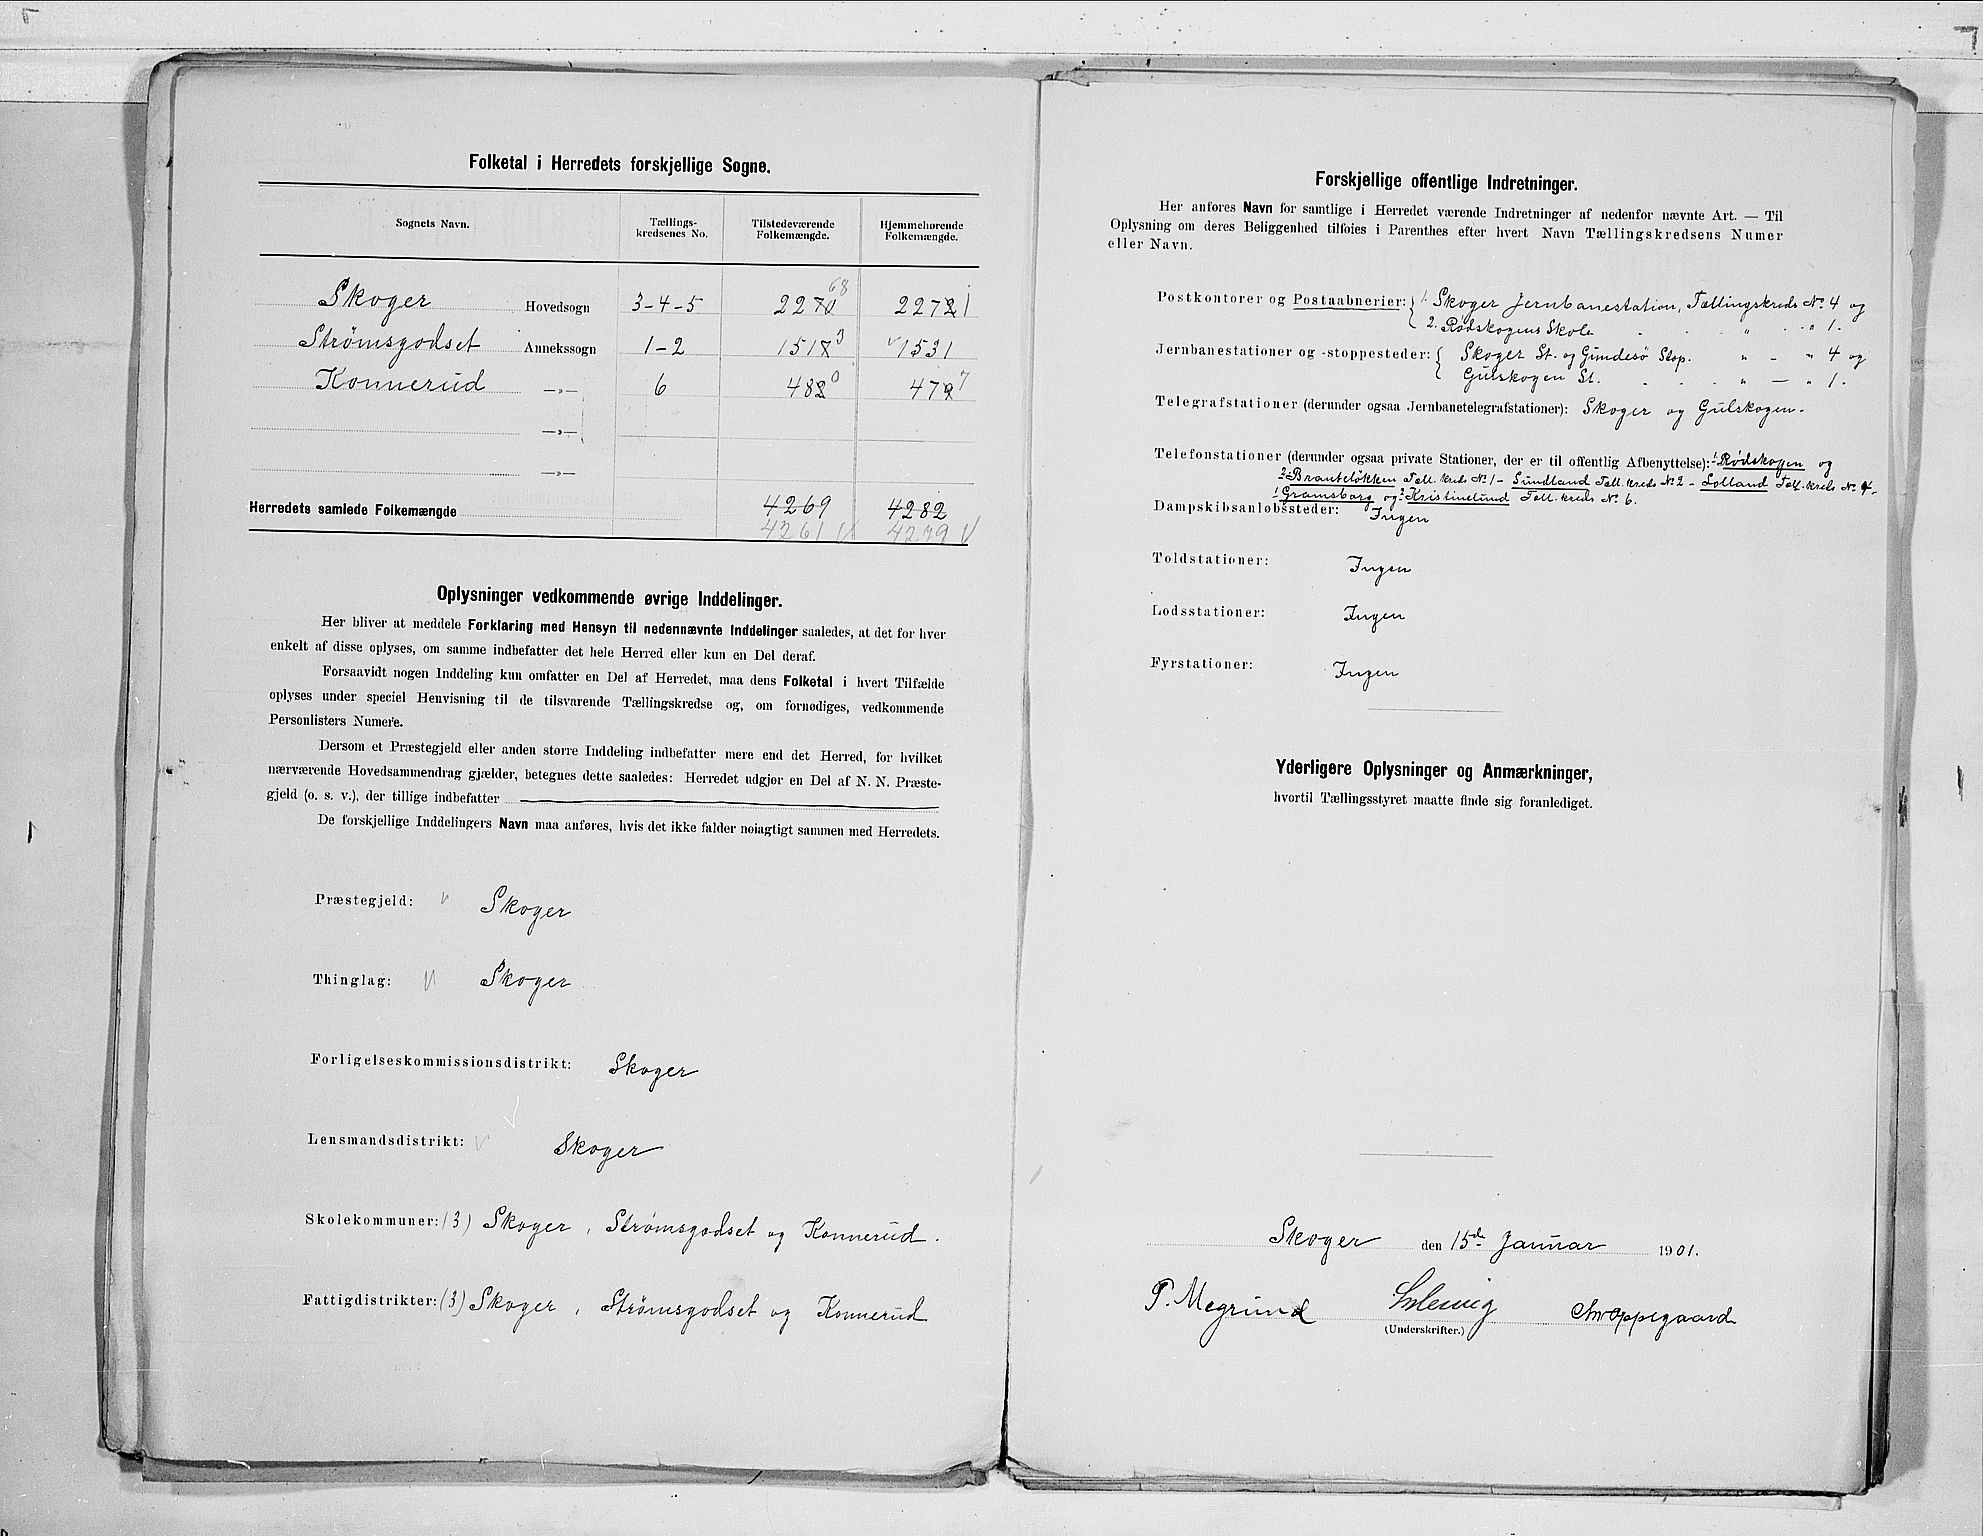 Folketal i Herredets forskjellige Sogne.
Sognets Navn. Tællings-kredsenes No. Tilstedeværende Folkemængde. Hjemmehørende Folkemængde.
68
Skoger Hovedsogn 3-4-5 2270 2272 1
Strømsgodset Annekssogn 1-2 1517 3 1531
Konnerud —»— 6 482 0 479 7
—»—
—»—
Herredets samlede Folkemængde 4269 4282
4261 4279
Oplysninger vedkommende øvrige Inddelinger.
Her bliver at meddele Forklaring med Hensyn til nedennævnte Inddelinger saaledes, at det for hver
enkelt af disse oplyses, om samme indbefatter det hele Herred eller kun en Del deraf.
Forsaavidt nogen Inddeling kun omfatter en Del af Herredet, maa dens Folketal i hvert Tilfælde
oplyses under speciel Henvisning til de tilsvarende Tællingskredse og, om fornødiges, vedkommende
Personlisters Numere.
Dersom et Præstegjeld eller anden større Inddeling indbefatter mere end det Herred, for hvilket
nærværende Hovedsammendrag gjælder, betegnes dette saaledes: Herredet udgjør en Del af N. N. Præste-
gjeld (o. s. v.), der tillige indbefatter
De forskjellige Inddelingers Navn maa anføres, hvis det ikke falder nøiagtigt sammen med Herredets.
Præstegjeld: Skoger
Thinglag: Skoger
Forligelseskommissionsdistrikt: Skoger
Lensmandsdistrikt: Skoger
Skolekommuner: (3) Skoger, Strømsgodset og Konnerud.
Fattigdistrikter: (3) Skoger, Strømsgodset og Konnerud
Forskjellige offentlige Indretninger.
Her anføres Navn for samtlige i Herredet værende Indretninger af nedenfor nævnte Art. — Til
Oplysning om deres Beliggenhed tilføies i Parenthes efter hvert Navn Tællingskredsens Numer
eller Navn.
Postkontorer og Postaabnerier: 1. Skoger Jernbanestation, Tællingskreds No. 4 og
2. Rødskogens Skole " " 1.
Jernbanestationer og -stoppesteder: Skoger St. og Gundesø Stop. " - " 4 og
Gulskogen St. " — " 1.
Telegrafstationer (derunder ogsaa Jernbanetelegrafstationer): Skoger og Gulskogen.
Telefonstationer (derunder ogsaa private Stationer, der er til offentlig Afbenyttelse): 1. Rødskogen og
2. Branteløkken Tæll. kreds No. 1 – Sundland Tæll. kreds No. 2 – Lolland Tæll. kreds No. 4 –
1. Gramsborg og 2. Kristinelund Tæll. kreds No. 6.
Dampskibsanløbssteder: Ingen
Toldstationer: Ingen
Lodsstationer: Ingen
Fyrstationer: Ingen
Yderligere Oplysninger og Anmærkninger,
hvortil Tællingsstyret maatte finde sig foranlediget.
Skoger den 15de Januar 1901.
P. Megrund
(Underskrifter.)